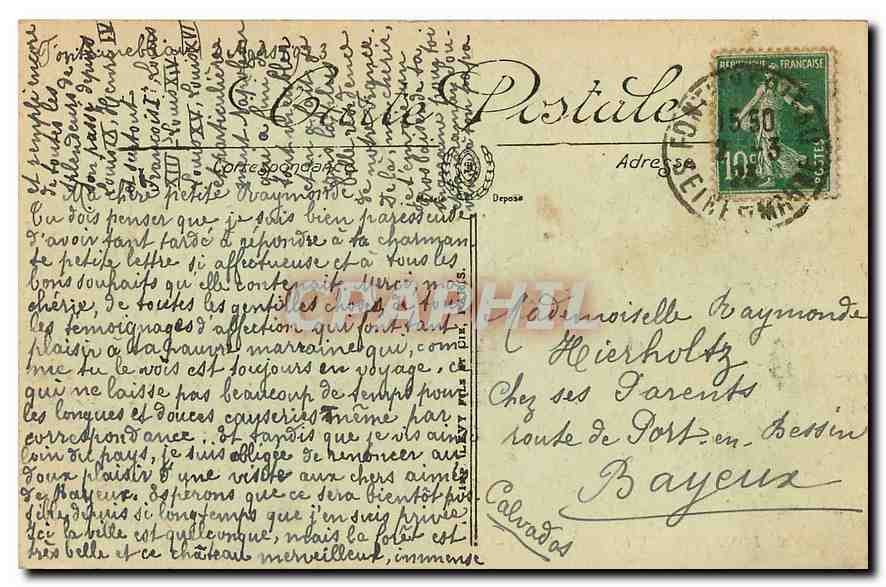 Fontainebleau, 2 Mars 1923
Carte Postale
Correspondance
Adresse
Deposé
Ma chère petite Raymonde
Tu dois penser que je suis bien paresseuse
d'avoir tant tardé à répondre à ta charman
te petite lettre si affectueuse et à tous les
bons souhaits qu'elle contenait. Merci, ma
chérie, de toutes les gentilles choses, de tous
les temoignages d'affection qui font tant
plaisir à ta pauvre marraine qui, com
me tu le vois est toujours en voyage, ce
qui ne laisse pas beaucoup de temps pour
les longues et douces causeries même par
correspondance. Et tandis que je vis ain
loin du pays, je suis obligée de renoncer au
doux plaisir d'une visite aux chers aimés
de Bayeux. Espérons que ce sera bientôt pos
sible depuis si longtemps que j'en suis privée
Ici la ville est quelconque, mais la forêt est
très belle et ce château merveilleux, immense
et renferme
de toutes les
splendeurs de
son passé depuis
Louis IX, Henri IV
et surtout
François Ier, Louis
XIII, Louis XIV,
Louis XV, Louis XVI
et particulière
ment Napoléon
Ier
belle résidence
De là, ma chérie,
LEVY FILS ET CIE, PARIS.
REPUBLIQUE FRANÇAISE
10c
POSTES
FONTAINEBLEAU
5 30
2 - 3
23
SEINE ET MARNE
Mademoiselle Raymonde
Hierholtz
Chez ses Parents
route de Port-en-Bessin
Bayeux
Calvados
CPAPHIL